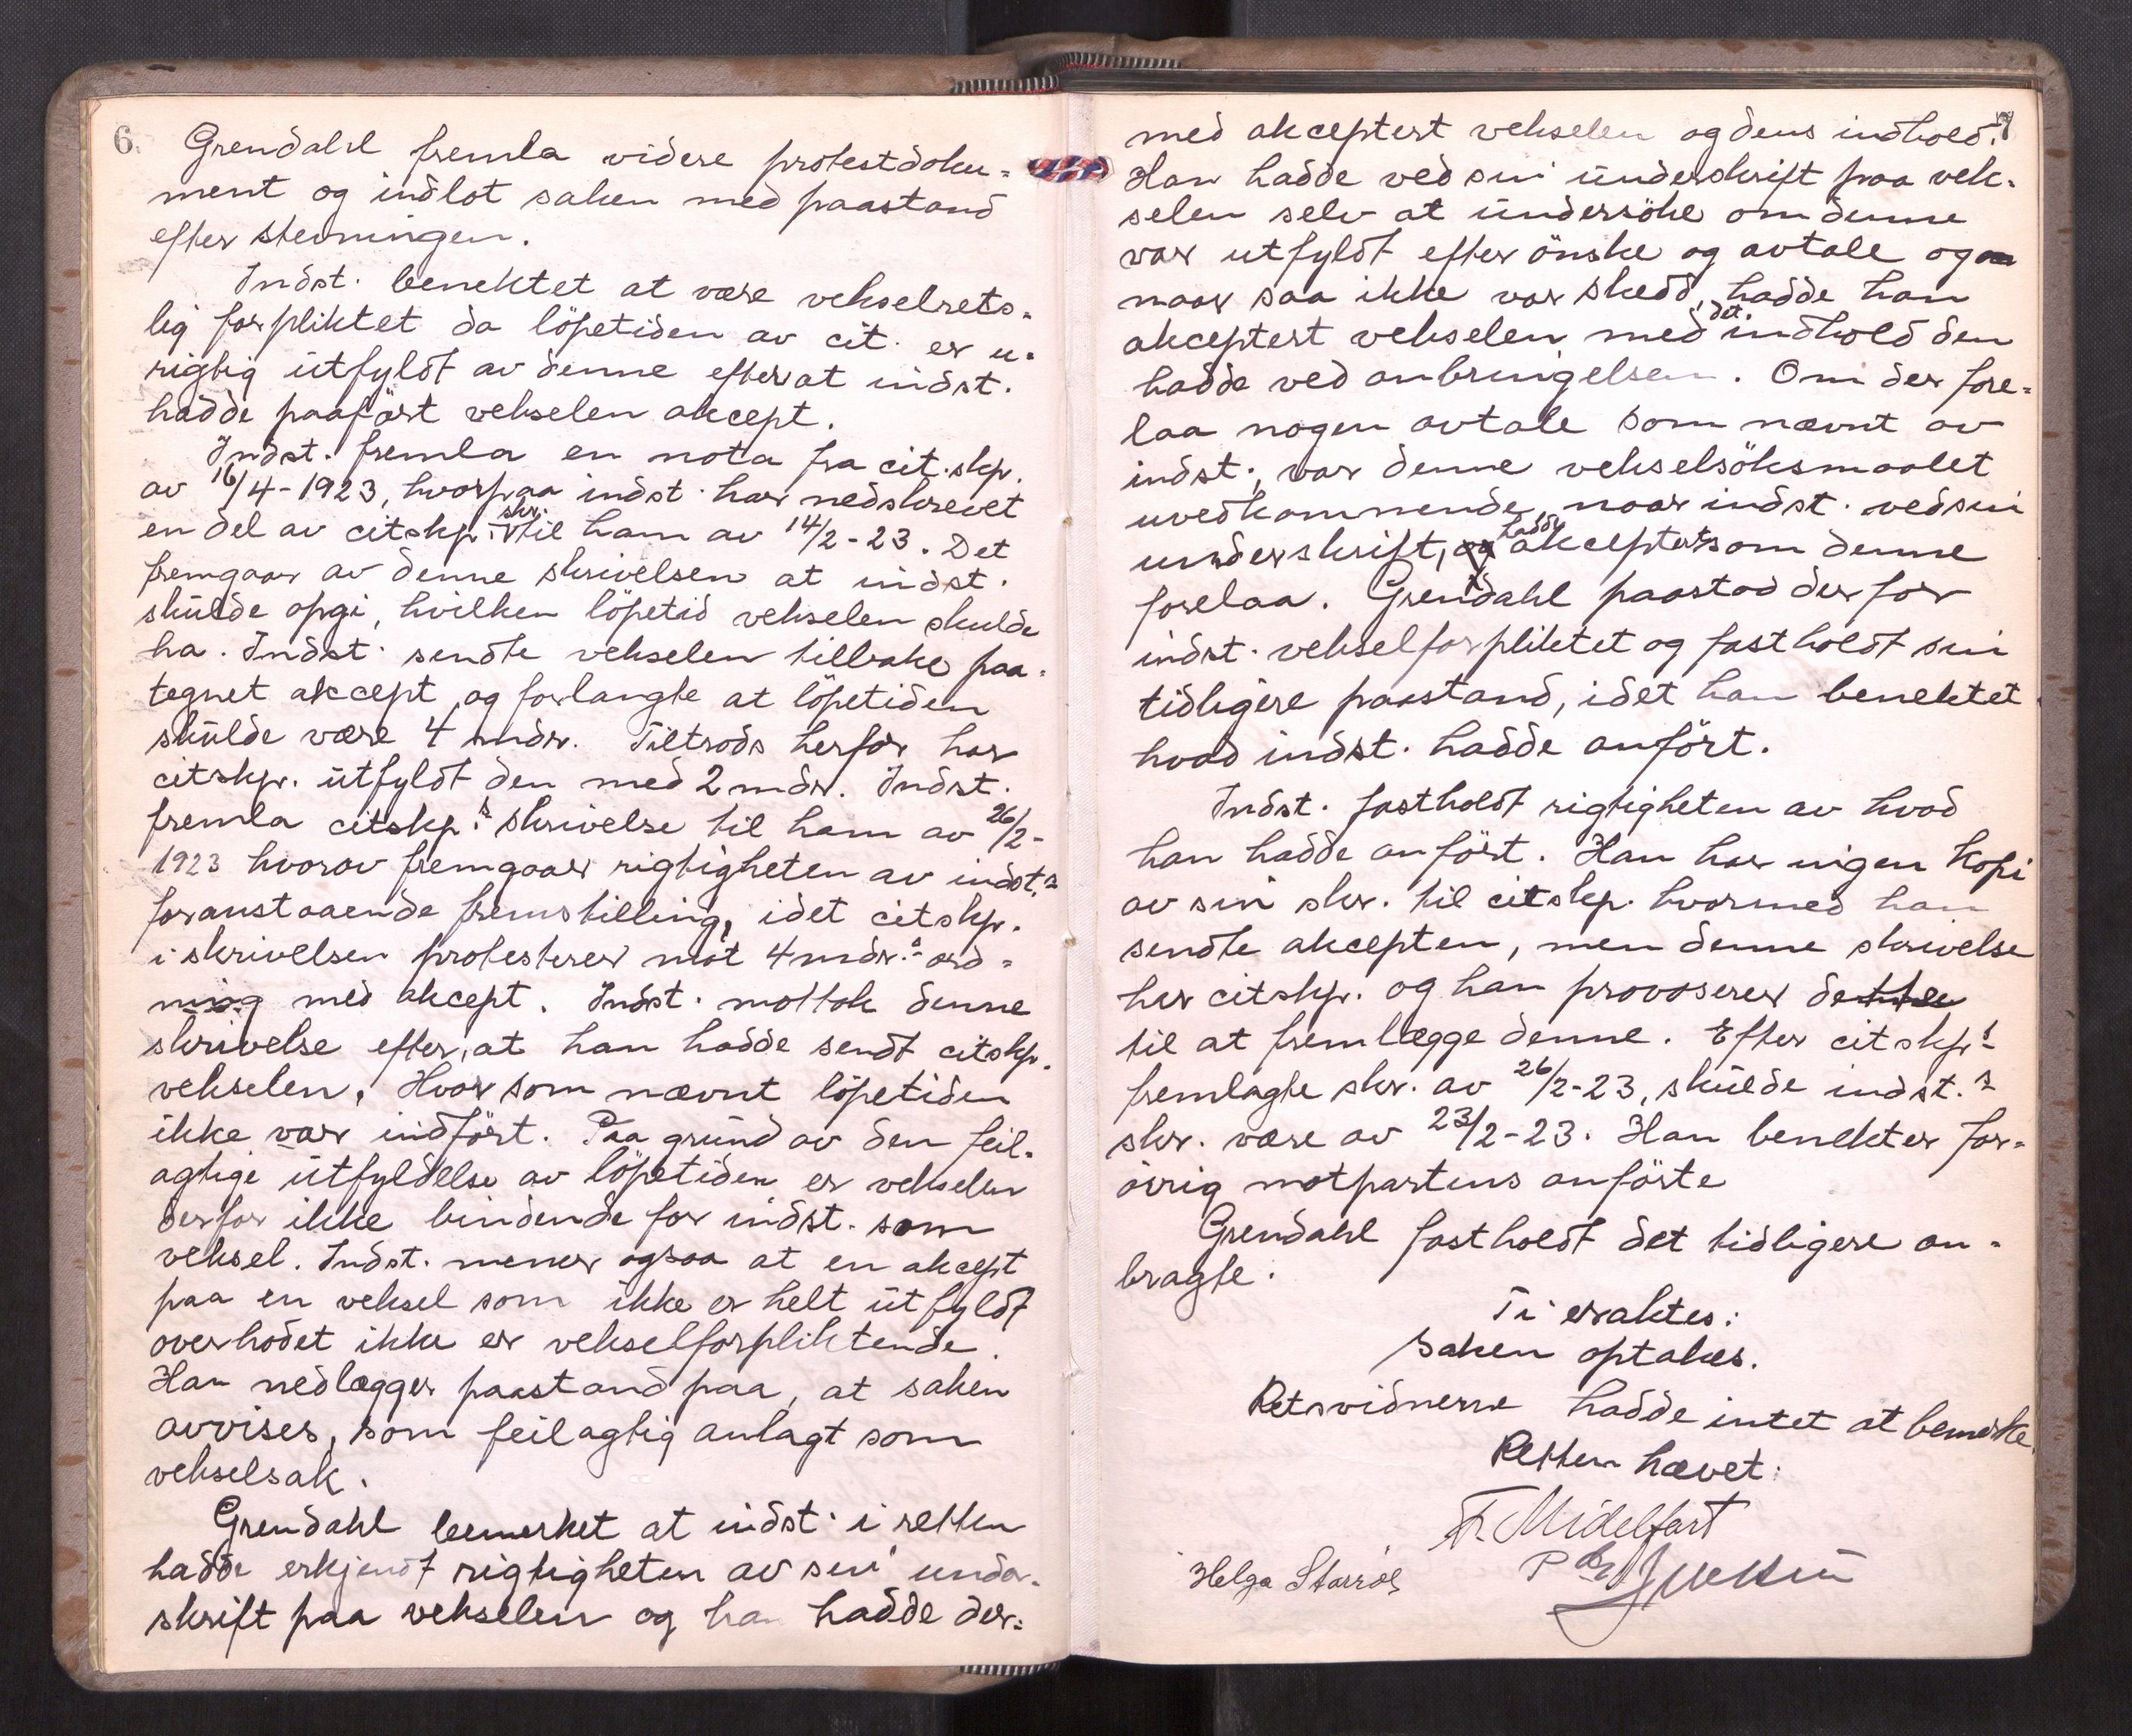 6.
Grendahl fremla videre protestdoku=
ment og indlot saken med paastand
efter stevningen.
Indst. benektet at være vekselrets=
lig forpliktet da löpetiden av cit. er u=
rigtig utfyldt av denne efterat indst.
hadde paaført vekselen akcept.
Indst. fremla en nota fra cit.skp.
av 16/4-1923, hvorpaa indst. har nedskrevet
en del av citskp. skr. til ham av 14/2-23. Det
fremgaar av denne skrivelsen at indst.
skulde opgi, hvilken löpetid vekselen skulde
ha. Indst. sendte vekselen tilbake paa=
tegnet akcept og forlangte at löpetiden
skulde være 4 mdr. Tiltrods herfor har
citskp. utfyldt den med 2 mdr. Indst.
fremla citskp.s skrivelse til ham av 26/2-
1923 hvorav fremgaar rigtigheten av indst.s
foranstaaende fremstilling, idet citskp.
i skrivelsen protesterer mot 4 mdr.s ord=
ning med akcept. Indst. mottok denne
skrivelse efter, at han hadde sendt citskp.
vekselen. Hvor som nævnt löpetiden
ikke var indført. Paa grund av den feil=
agtige utfyldelse av löpetiden er vekselen
derfor ikke bindende for indst. som
veksel. Indst. mener ogsaa at en akcept
paa en veksel som ikke er helt utfyldt
overhodet ikke er vekselforpliktende.
Han nedlægger paastand paa, at saken
avvises, som feilagtig anlagt som
vekselsak.
Grendahl bemerket at indst. i retten
hadde erkjendt rigtigheten av sin under=
skrift paa vekselen og han hadde der=
7
med akceptert vekselen og dens indhold.
Han hadde ved sin underskrift paa vek=
selen selv at undersöke om denne
var utfyldt efter önske og avtale og
naar saa ikke var skedd, hadde han
akceptert vekselen med det indhold den
hadde ved anbringelsen. Om der fore=
laa nogen avtale som nævnt av
indst., var denne vekselsöksmaalet
uvedkommende, naar indst. ved sin
underskrift, og hadde akceptert som denne
forelaa. Grendahl paastod derfor
indst. vekselforpliktet og fastholdt sin
tidligere paastand, idet han benektet
hvad indst. hadde anført.
Indst. fastholdt rigtigheten av hvad
han hadde anført. Han har ingen kopi
av sin skr. til citskp. hvormed han
sendte akcepten, men denne skrivelse
har citskp. og han provoserer dette
til at fremlægge denne. Efter citskp.s
fremlagte skr. av 26/2-23, skulde indst.s
skr. være av 23/2-23. Han benekter for=
övrig motpartens anförte
Grendahl fastholdt det tidligere an=
bragte.
Ti eraktes:
Saken optakes.
Retsvidnerne hadde intet at bemerke.
Retten hævet:
Fr. Midelfart
Helga Starröl